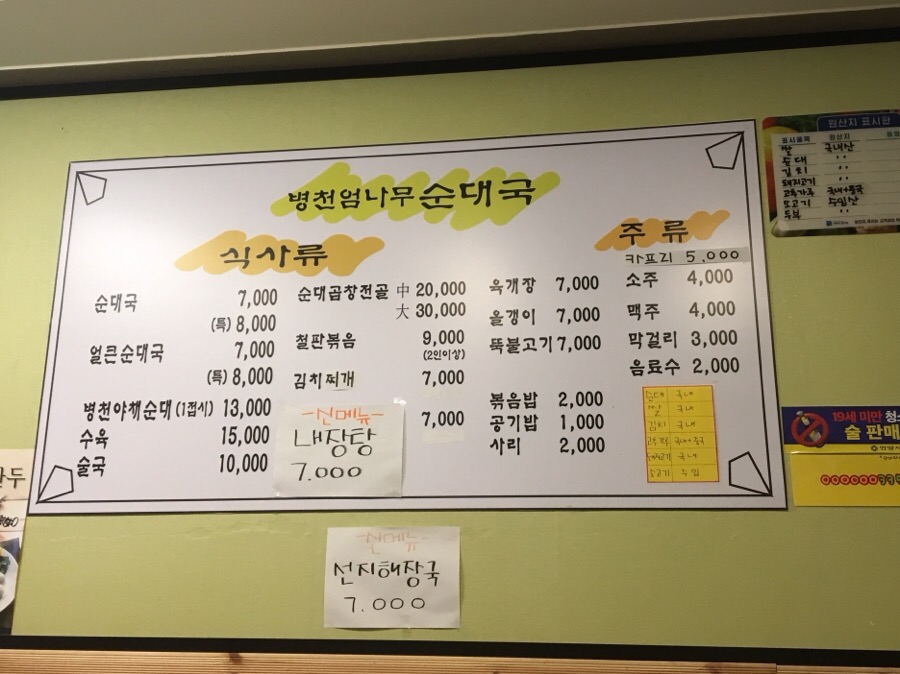 병천엄나무순대국
식사류
순대국 7,000
(특) 8,000
얼큰순대국 7,000
(특) 8,000
병천야채순대 (1접시) 13,000
수육 15,000
술국 10,000
순대곱창전골 中 20,000
大 30,000
철판볶음 9,000
(2인이상)
김치찌개 7,000
7,000
-신메뉴-
내장탕
7.000
육개장 7,000
올갱이 7,000
뚝불고기 7,000
볶음밥 2,000
공기밥 1,000
사리 2,000
주류
카프리 5.000
소주 4,000
맥주 4,000
막걸리 3,000
음료수 2,000
순대 국내
쌀 국내
김치 국내
고추가루 국내+중국
돼지고기 국내
소고기 수입
-신메뉴-
선지해장국
7.000
원산지 표시판
표시품목 원산지
쌀 국내산
순대 〃
김치 〃
돼지고기 〃
고추가루 국내+중국
소고기 수입산
두부 〃
19세 미만 청소
술 판매
만두